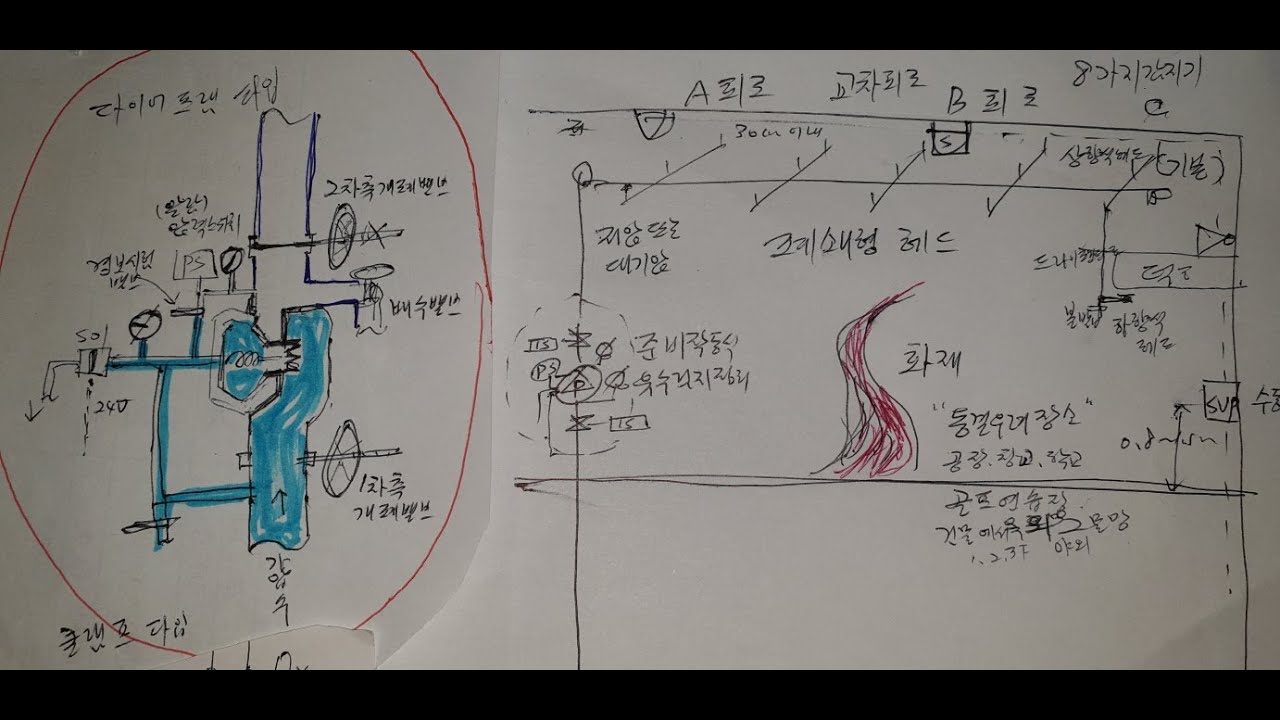 다이어프램 타입
2차측개폐밸브
(알람)
압력스위치
경보시험
밸브
PS
배수밸브
SOL
24V
1차측
개폐밸브
가
압
수
클램프 타입
A 회로
교차회로
B 회로
8가지감지기
30cm이내
S
상향식헤드
(기본)
저압 또는
대기압
폐쇄형 헤드
덕트
하향식
헤드
TS
PS
P
TS
준비작동식
유수검지장치
화재
"동결우려장소"
공장.창고.학교
골프연습장
1.2.3F
야외
그물망
SVP
수동
0.8~1.5m